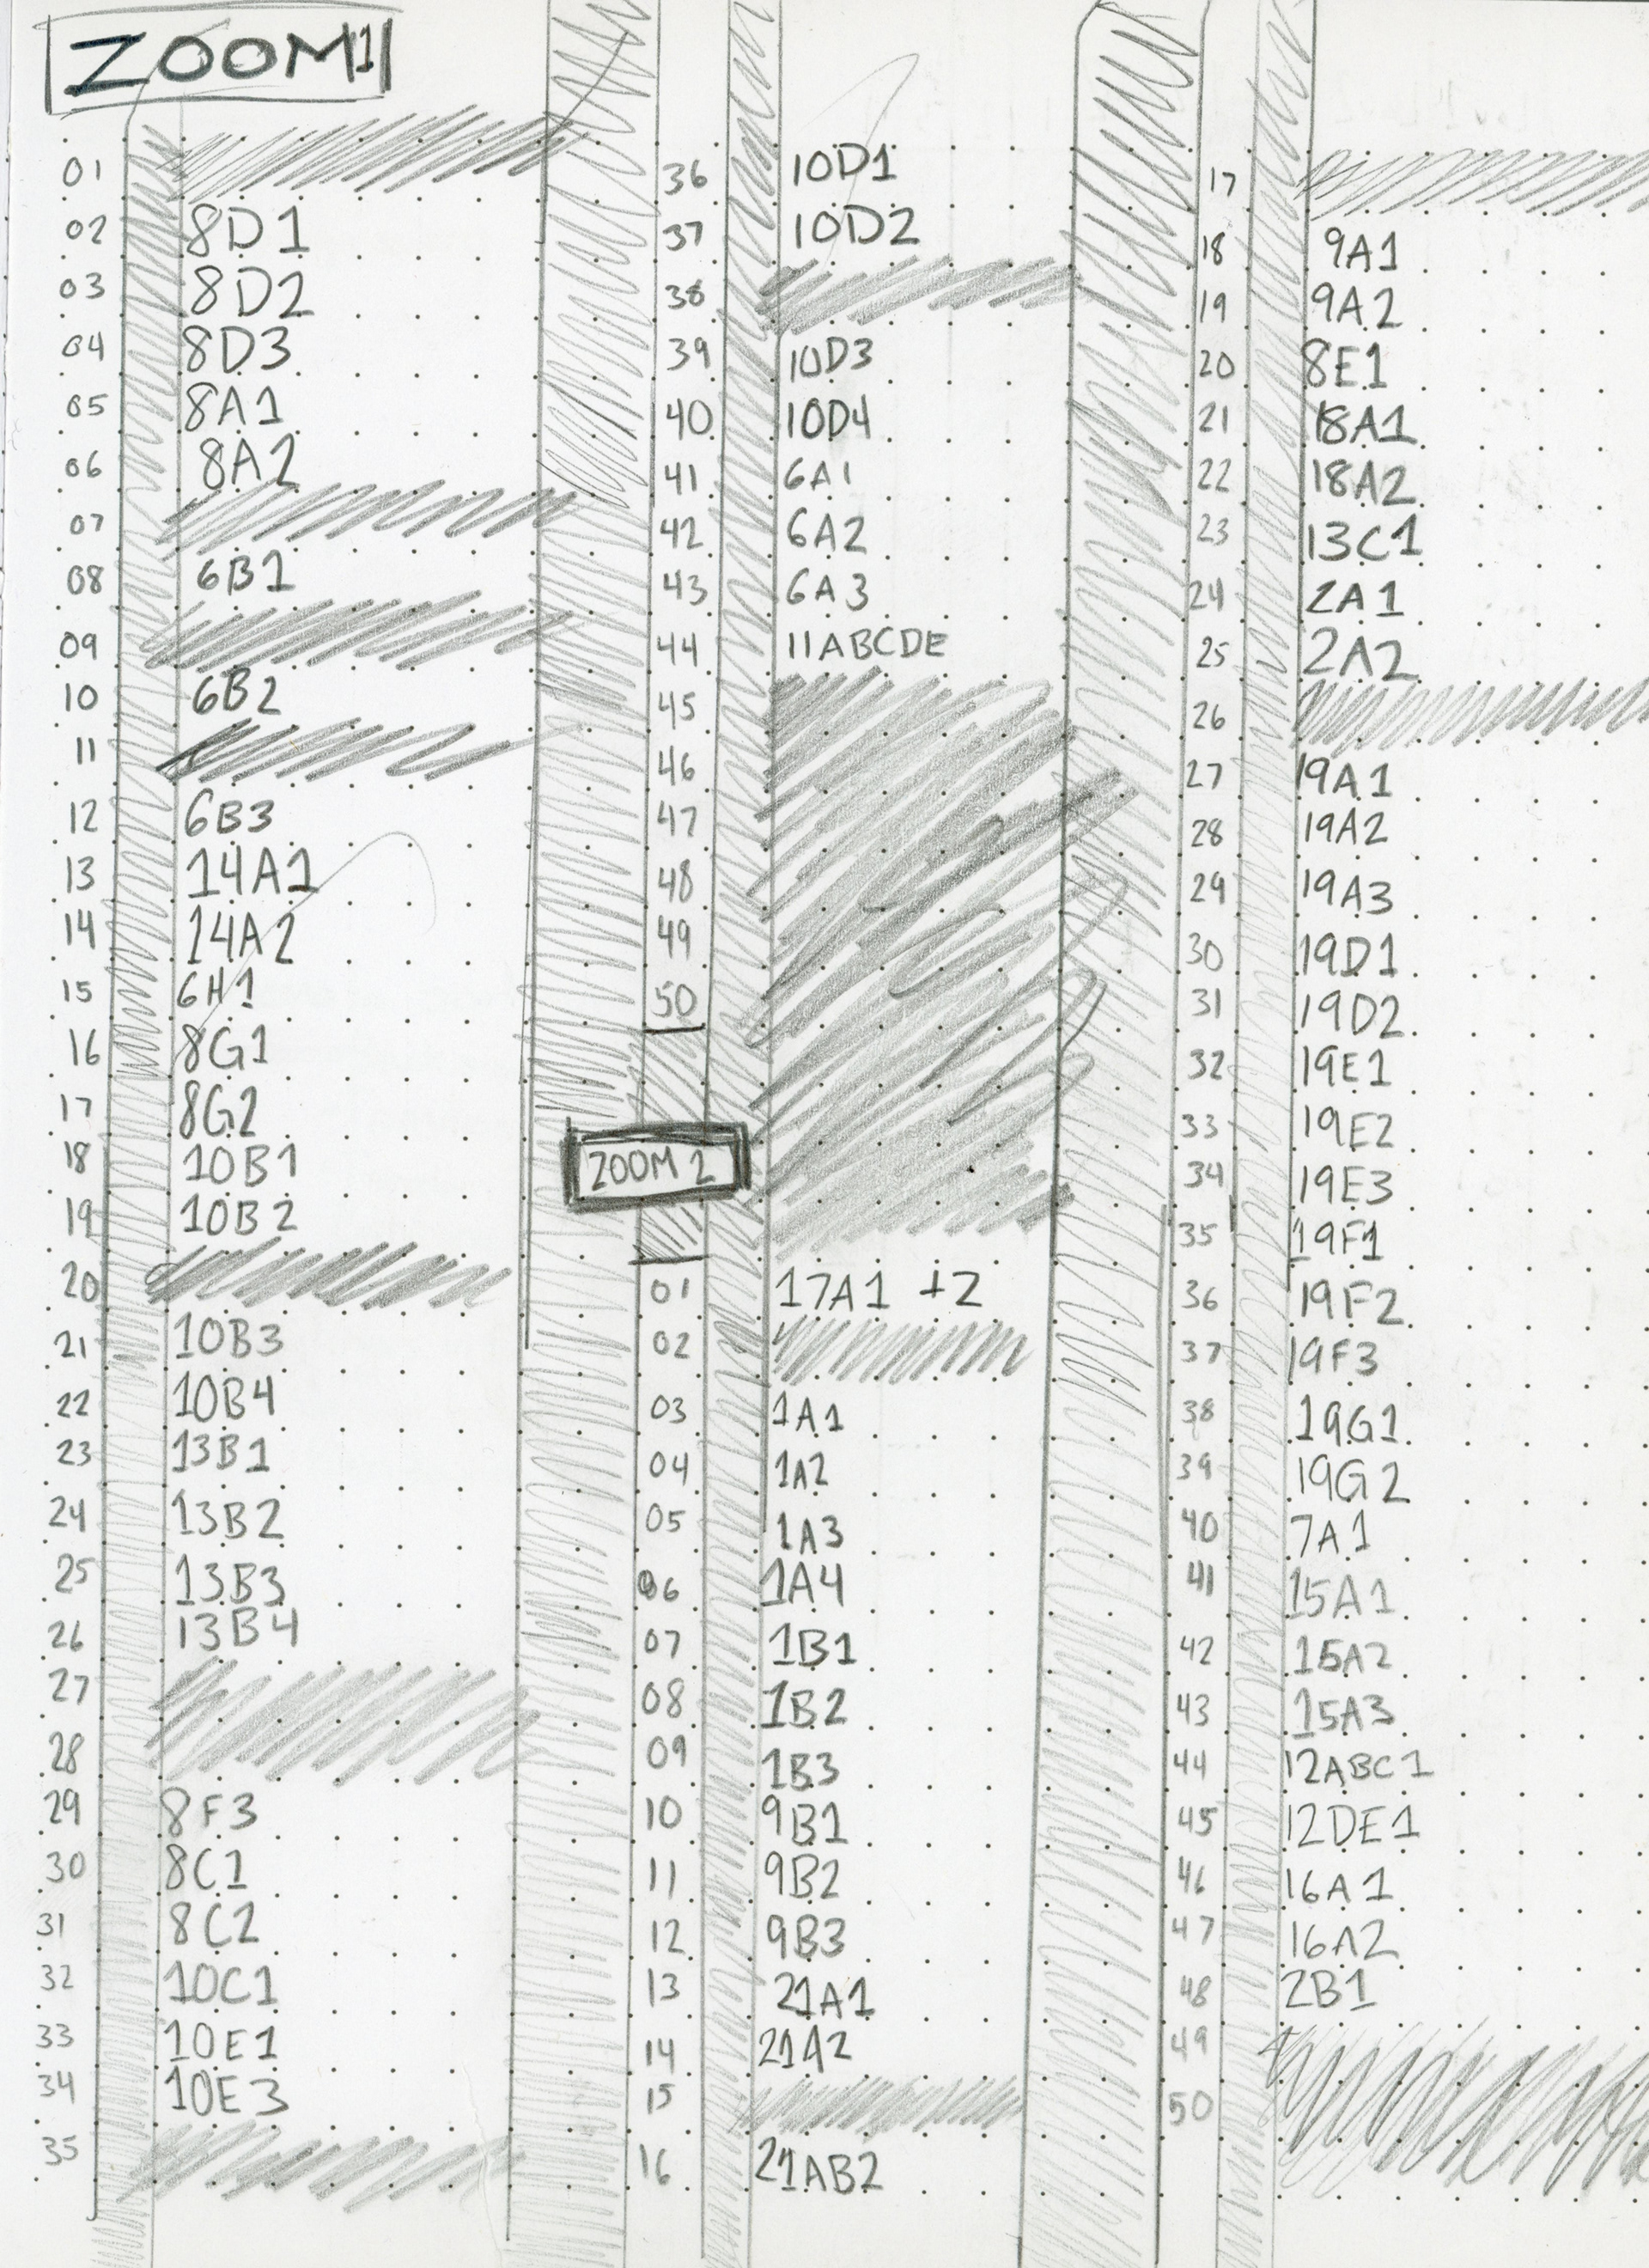 ZOOM1
01
02 8D1
03 8D2
04 8D3
05 8A1
06 8A2
07
08 6B1
09
10 6B2
11
12 6B3
13 14A1
14 14A2
15 6H1
16 8G1
17 8G2
18 10B1
19 10B2
20
21 10B3
22 10B4
23 13B1
24 13B2
25 13B3
26 13B4
27
28
29 8F3
30 8C1
31 8C2
32 10C1
33 10E1
34 10E3
35
36 10D1
37 10D2
38
39 10D3
40 10D4
41 6A1
42 6A2
43 6A3
44 11ABCDE
45
46
47
48
49
50
ZOOM 2
01 17A1 +2
02
03 1A1
04 1A2
05 1A3
06 1A4
07 1B1
08 1B2
09 1B3
10 9B1
11 9B2
12 9B3
13 21A1
14 21A2
15
16 21AB2
17
18 9A1
19 9A2
20 8E1
21 18A1
22 18A2
23 13C1
24 2A1
25 2A2
26
27 19A1
28 19A2
29 19A3
30 19D1
31 19D2
32 19E1
33 19E2
34 19E3
35 19F1
36 19F2
37 19F3
38 19G1
39 19G2
40 7A1
41 15A1
42 15A2
43 15A3
44 12ABC1
45 12DE1
46 16A1
47 16A2
48 2B1
49
50